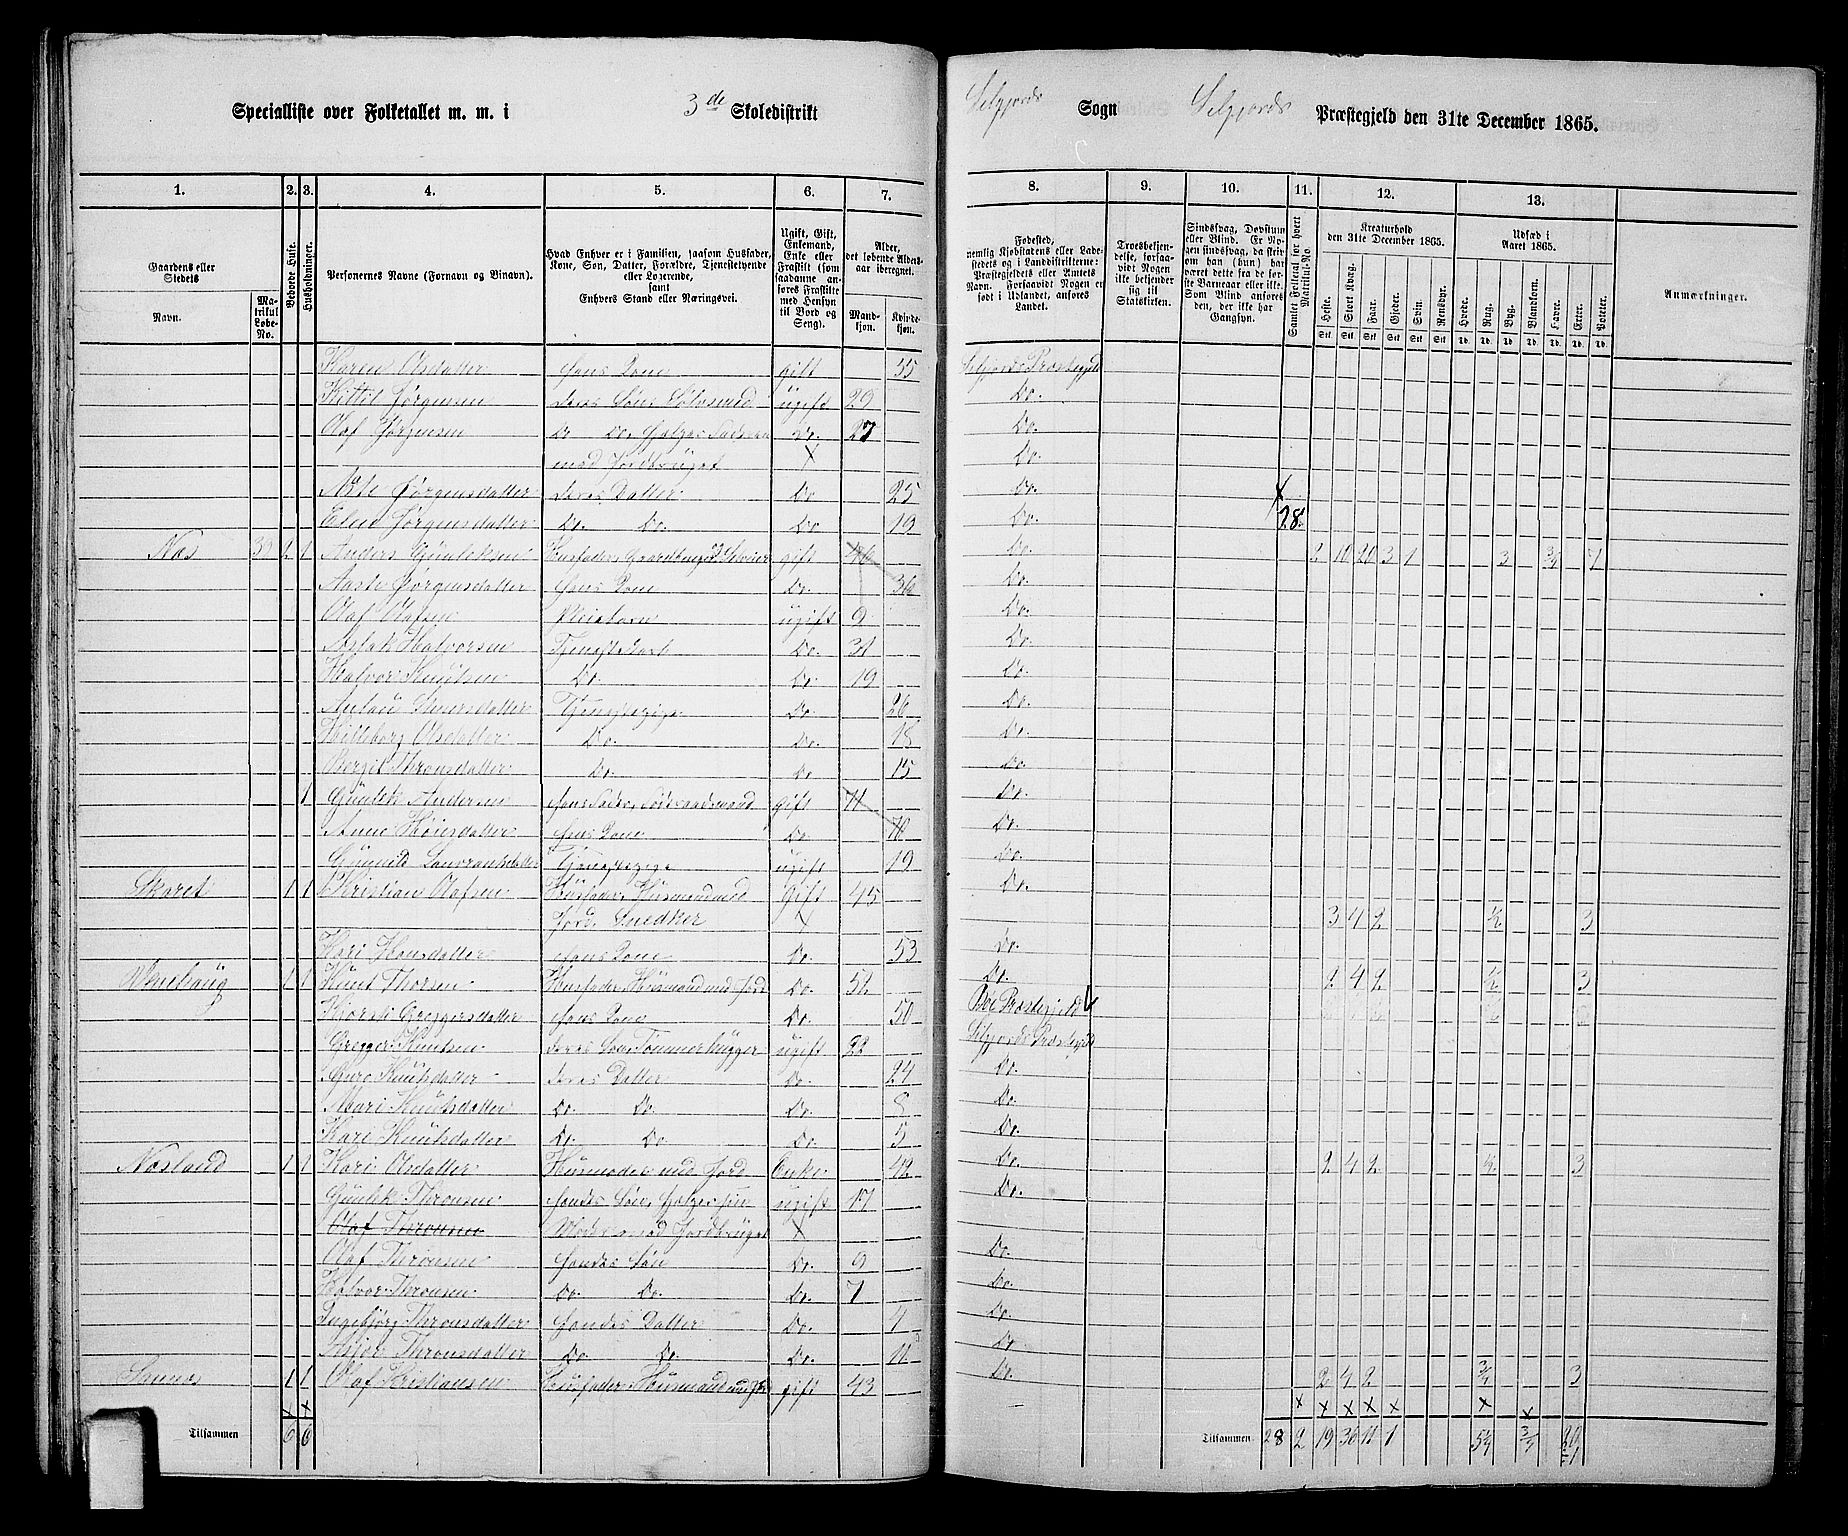 Specialliste over Folketallet m. m. i 3de Skoledistrikt Selgjords Sogn Selgjords Præstegjeld den 31te December 1865.
1. 2. 3. 4. 5. 6. 7. 8. 9. 10. 11. 12. 13.
Gaardens eller Stedets Navn.
Matrikul Løbe-No.
Beboede Huse.
Husholdninger.
Personernes Navne (Fornavn og Tilnavn).
Hvad Enhver er i Familien, saasom Husfader, Kone, Søn, Datter, Forældre, Tjenestetyende eller Logerende, samt Enhvers Stand eller Næringsvei.
Ugift, Gift, Enkemand, Enke eller Fraskilt (som saadanne anføres Fraskilte med Hensyn til Bord og Seng).
Alder, det løbende Alders-aar iberegnet.
Mandkjøn. Kvindekjøn.
Fødested, nemlig Kjøbstadens eller Ladestedets eller i Landdistrikterne: Præstegjeldets eller Amtets Navn. Forsaavidt Nogen er født i Udlandet, anføres Landet.
Troesbekjendelse, forsaavidt Nogen ikke bekjender sig til Statskirken.
Sindssvag, Døvstum eller Blind.
Samlet Folketal for hvert Matrikul-No.
Kreaturhold den 31te December 1865.
Heste. Stort Kvæg. Faar. Gjeder. Svin. Rensdyr.
Udsæd i Aaret 1865.
Hvede. Rug. Byg. Blandkorn. Havre. Erter. Poteter.
Anmærkninger.
Karen Olsdatter hans Kone gift 55 Selgjords Præstegjeld
Kittil Jørgensen deres Søn, Sølvsmed ugift 29 Do.
Olaf Jørgensen Do Do. hjelper Faderen Do. 27 Do.
med Jordbruget X Do.
Aste Jørgensdatter deres Datter Do 25 Do.
Elen Jørgensdatter Do. Do. Do 19 Do. 28
Næs 39 1 1 Anders Gunleksen Husfader, Gaardbruger, Selveier gift 46 Do. 2 10 20 3 1 3
Aaste Jørgensdatter hans Kone Do. 36 Do.
Olaf Olafsen Pleiebarn ugift 9 Do.
Aslak Halvorsen Tjenestekarl Do. 31 Do.
Halvor Knutsen Do. Do. 19 Do.
Tjenestepige Do. 26 Do.
Olsdatter Do. Do. 18 Do.
Bergit Thronsdatter Do. Do 15 Do.
1 Gunlek Andersen hans Fader, Føderaadsmand gift 71 Do.
Anne hans Kone Do. 70 Do.
Gunild Tjenestepige ugift 19 Do.
Skaret 1 1 Kristian Olafsen Husfader, Husmand med gift 45 Do.
Jord. Snedker X 3 4 2 1/2 3
Kari Hansdatter hans Kone Do. 53 Do.
1 1 Knut Thorsen Husfader, Husmand med Jord Do. 52 Do. 2 4 2 1/2 3
Greggersdatter hans Kone Do. 50 Bø Præstegjeld
Gregger Knutsen deres Søn, Tømmerhugger ugift 22 Selgjords Præstegjeld
Gure Knutsdatter deres Datter Do. 24 Do.
Mari Knutsdatter Do. Do. Do. 8 Do.
Kari Knutsdatter Do. Do. Do. 5 Do.
Næsland 1 1 Kari Olsdatter Husmoder med Jord Enke 42 Do. 2 4 2 3
Gunlek Thronsen hendes Søn, hjelper sin ugift 17 Do.
Olaf Thronsen Moder med Jordbruget X
Olaf Thronsen hendes Søn Do. 9 Do.
Halvor Thronsen Do. Do. Do. 7 Do.
Ingebjørg Thronsdatter hendes Datter Do. 4 Do.
Thronsdatter Do Do. Do. 11 Do.
1 1 Olaf Kristiansen Husfader, Husmand med Jord gift 43 Do. 2 4 2 3/4 3
Tilsammen 6 6 Tilsammen 28 2 19 36 11 1 5 3/4